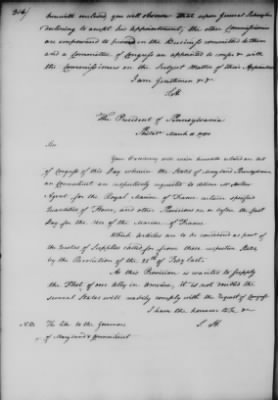 herewith enclosed, you will observe that upon General Schuyler
declining to accept his appointment, the other Commissioners
are empowered to proceed in the Business committed to them
and a Committee of Congress an appointed to confer with
the Commissioners on the Subject Matter of their Appointment
I am Gentlemen &c
The President of Pennsylvania
March 11 1780
Sir
Your Excellency will receive herewith enclosed an act
of Congress of this Day wherein the States of Maryland Pennsylvania
and Connecticut are respectively requested to deliver Mr Holker
Agent for the Royal Marine of France certain specified
Quantities of Flour, and other Provisions on or before the first
Day for the use of the Marine of France.
Which Articles are to be considered as part of
the Quotas of Supplies called for from these respective States
by the Resolution of the 25th of Feby last.
As this Provision is wanted to supply
the Fleet of our Ally in America, it is not doubted the
several States will readily comply with the request of Congress
I have the honour to be &c
S. H.
N.B. The like to the Governors
of Maryland & Connecticut